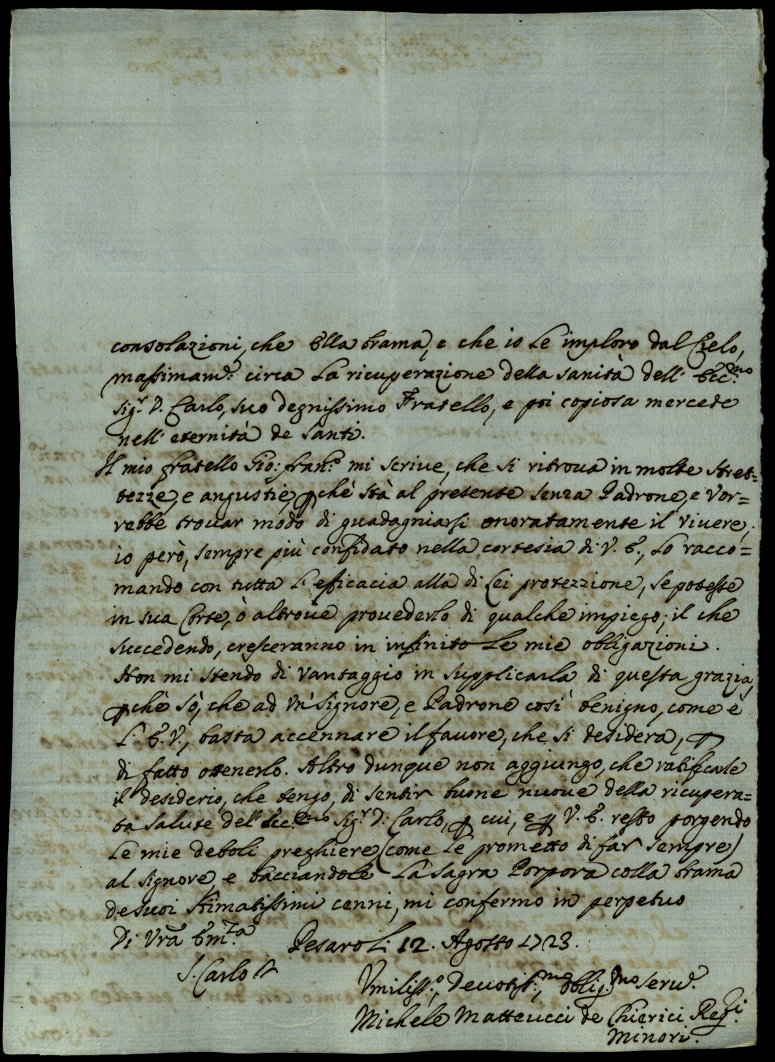 consolazioni, che Ella brama, e che io Le imploro dal Cielo,
massimam.e circa La ricuperazione della sanità dell' Ecc.mo
Sig.r D. Carlo, suo degnissimo Fratello, e poi copiosa mercede
nell' eternità de Santi.
Il mio fratello Gio: fran.o mi scrive, che si ritroua in molte stret=
tezze, e angustie, pchè stà al presente senza Padrone, e Vor=
rebbe trouar modo di guadagniarsi onoratamente il vivere;
io però, sempre più confidato nella cortesia di V. E., Lo racco=
mando con tutta L'efficacia alla di Lei protezzione, se potesse
in sua Corte, ò altroue prouederlo di qualche impiego; il che
succedendo, cresceranno in infinito Le mie obligazioni.
Non mi stendo di vantaggio in supplicarla di questa grazia,
pchè sò, che ad Vn' Signore, e Padrone così benigno, come è
L'E. V., basta accennare il fauore, che si desidera, p
di fatto ottenerlo. Altro dunque non aggiungo, che ratificarle
il desiderio, che tengo, di sentir buone nuoue della ricupera=
ta salute dell' Ecc.mo Sig.r D. Carlo, p cui, e p V. E. resto porgendo
Le mie deboli preghiere (come Le prometto di far sempre)
al Signore, e bacciandole La Sagra Porpora colla brama
de suoi stimatissimi cenni, mi confermo in perpetuo
Di Vrã Em.za Pesaro Li 12. Agosto 1723.
S. Carlo
Vmiliss.o, Deuotiss.mo, Oblig.mo seru.e
Michele Matteucci de Chierici Reg.i
Minori.